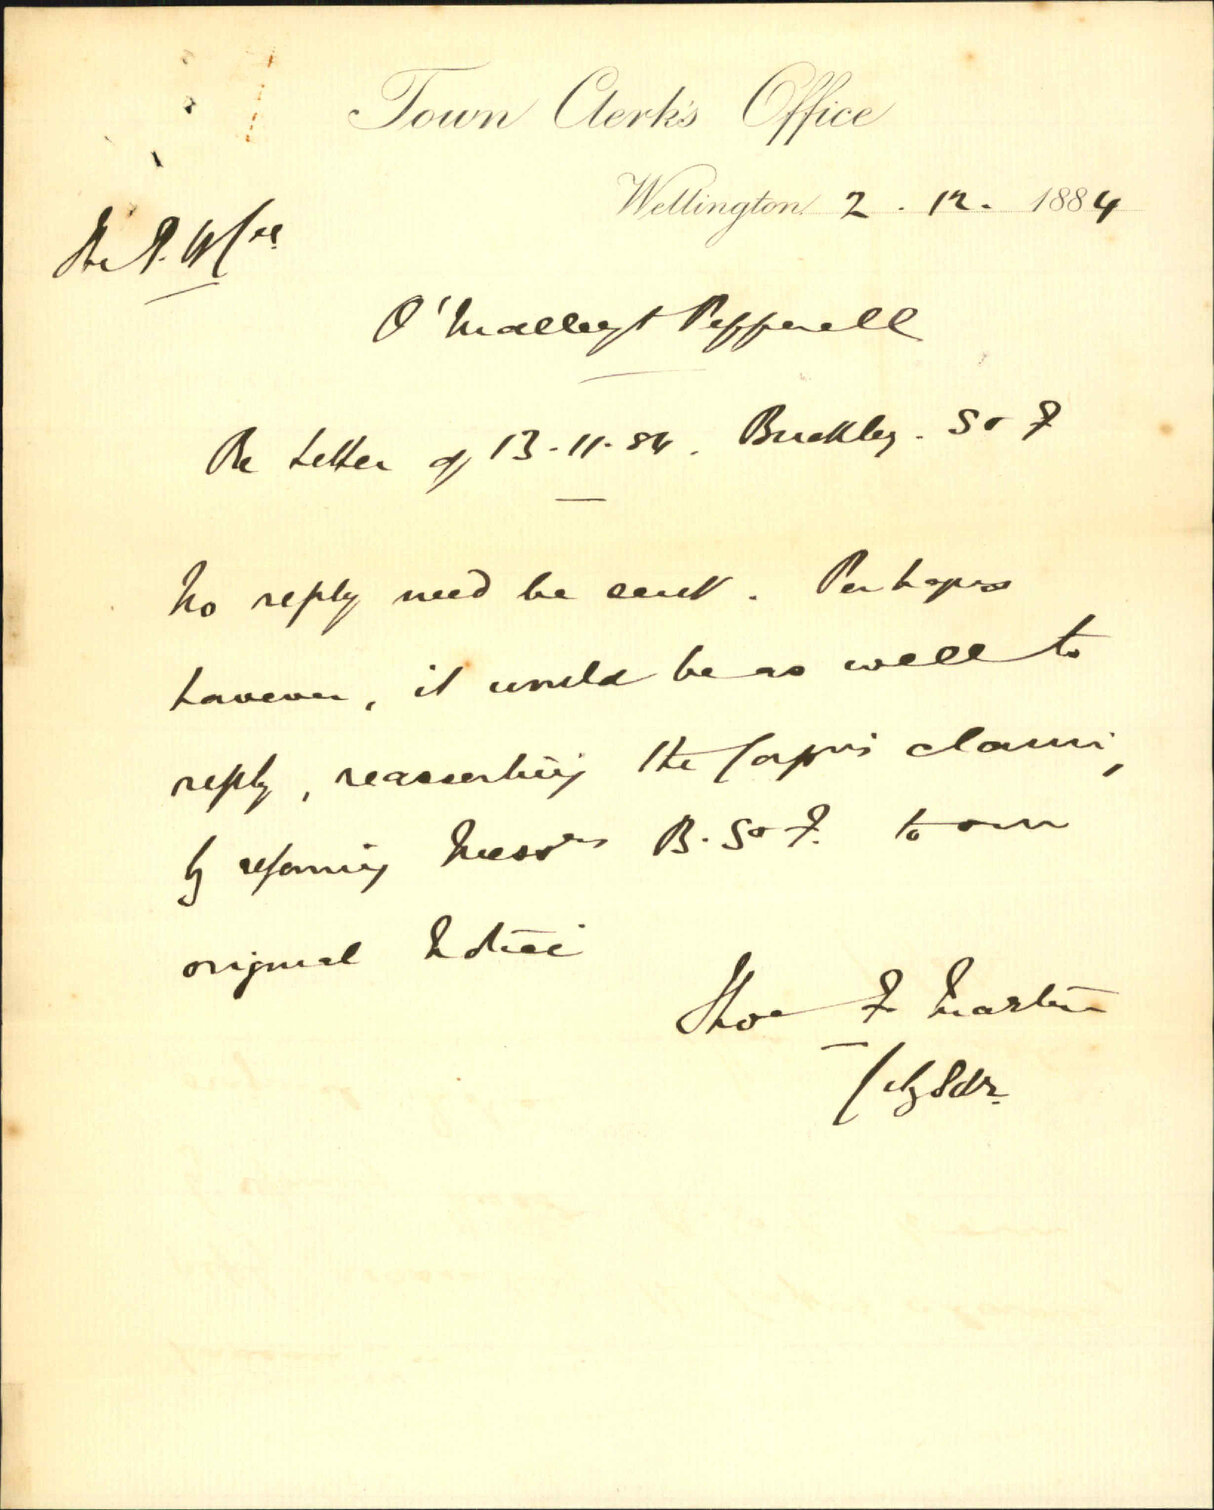 Town Clerk's Office
Wellington 2 . 12 . 1884
The P. W. Cee
O'Malley & Pepperell
Re letter of 13 . 11 . 84 . Buckley . S & F
No reply need be sent . Perhaps
however , it would be as well to
reply , reasserting the Corpn's claim ,
by referring Messrs B. S & F. to our
original Notice
Thos F Martin
City Solr.